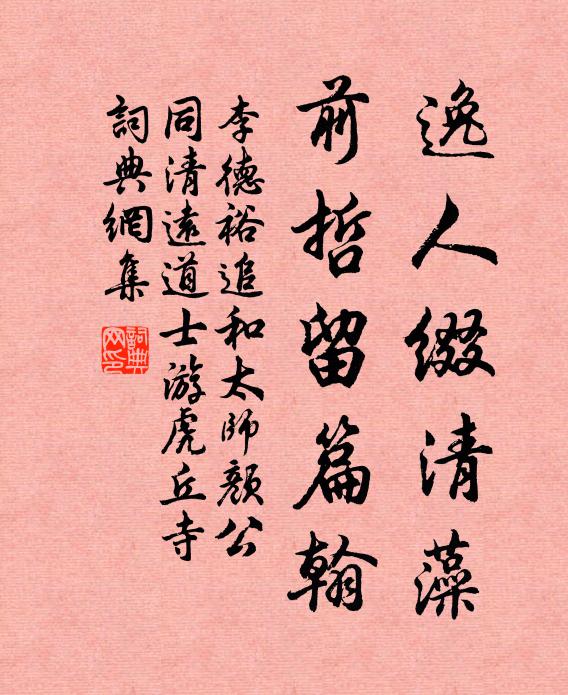 逸人缀清藻
前哲留篇翰
李德裕追和太師顏公
同清遠道士游虎丘寺
詞典網集
詞典
网印